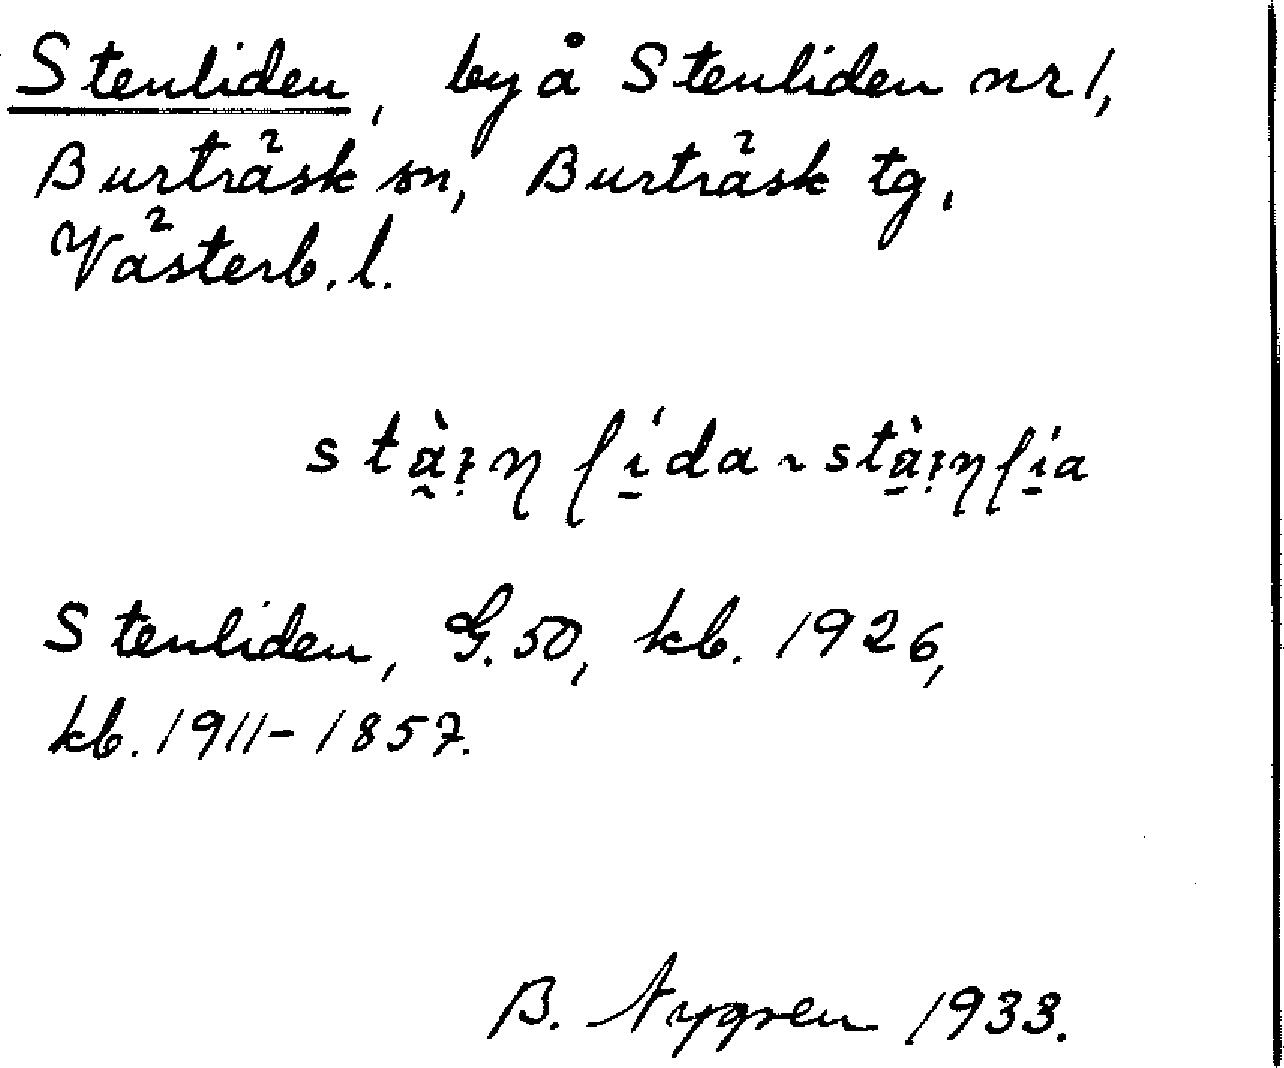 Stenliden, by å Stenliden nr 1,
Burträsk sn, Burträsk tg,
Västerb. l.
Stenliden, G. 50, kb. 1926,
kb. 1911-1857.
B. Nygren 1933.